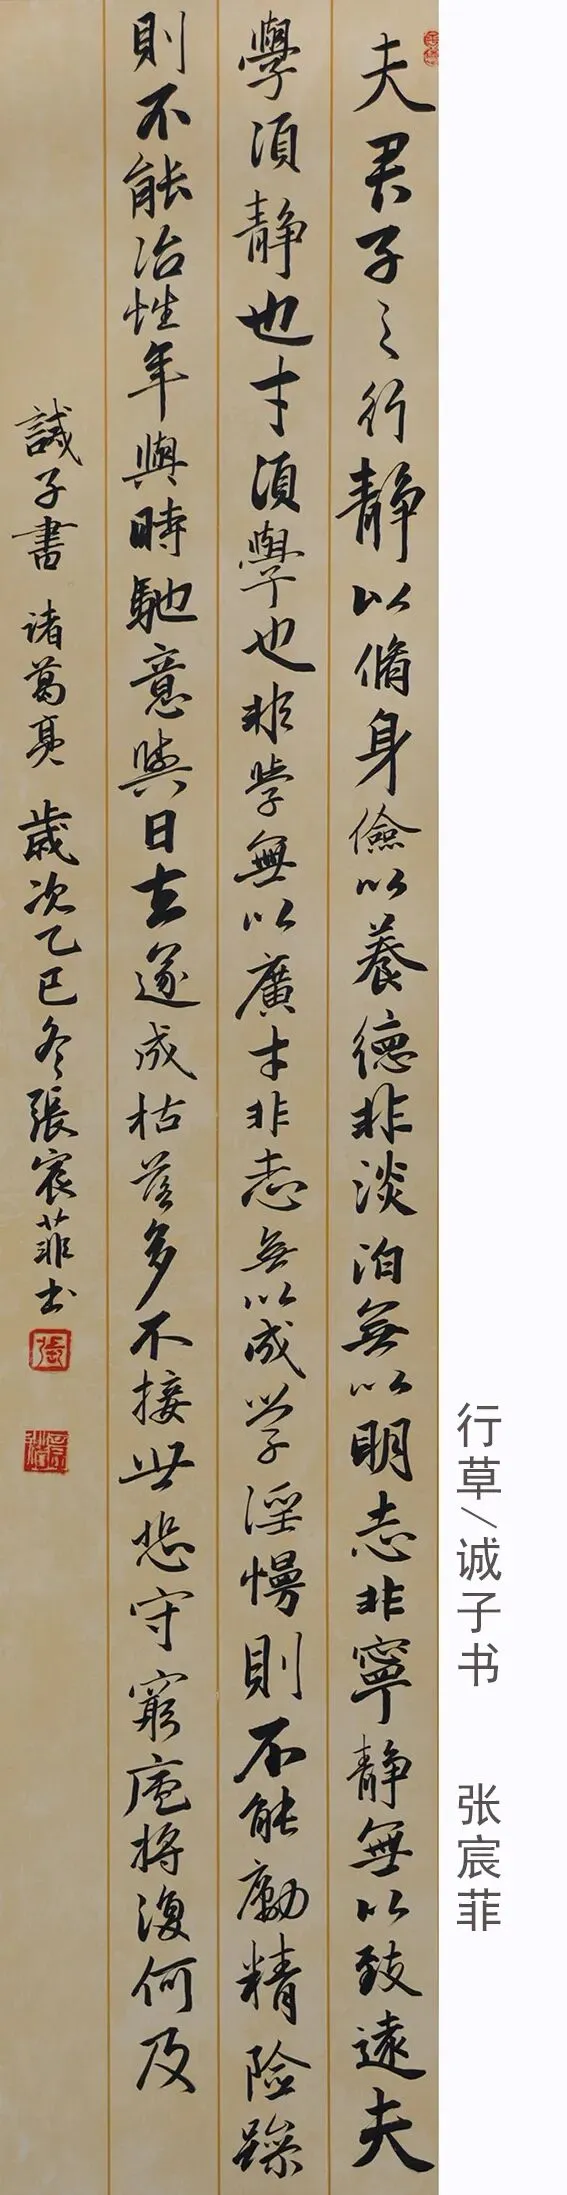 夫君子之行靜以脩身儉以養德非淡泊無以明志非寧靜無以致遠夫
學須靜也才須學也非學無以廣才非志無以成學淫慢則不能勵精險躁
則不能冶性年與時馳意與日去遂成枯落多不接世悲守窮廬將復何及
誡子書 诸葛亮 歲次乙巳冬張宸菲书
張
行草/诚子书 张宸菲